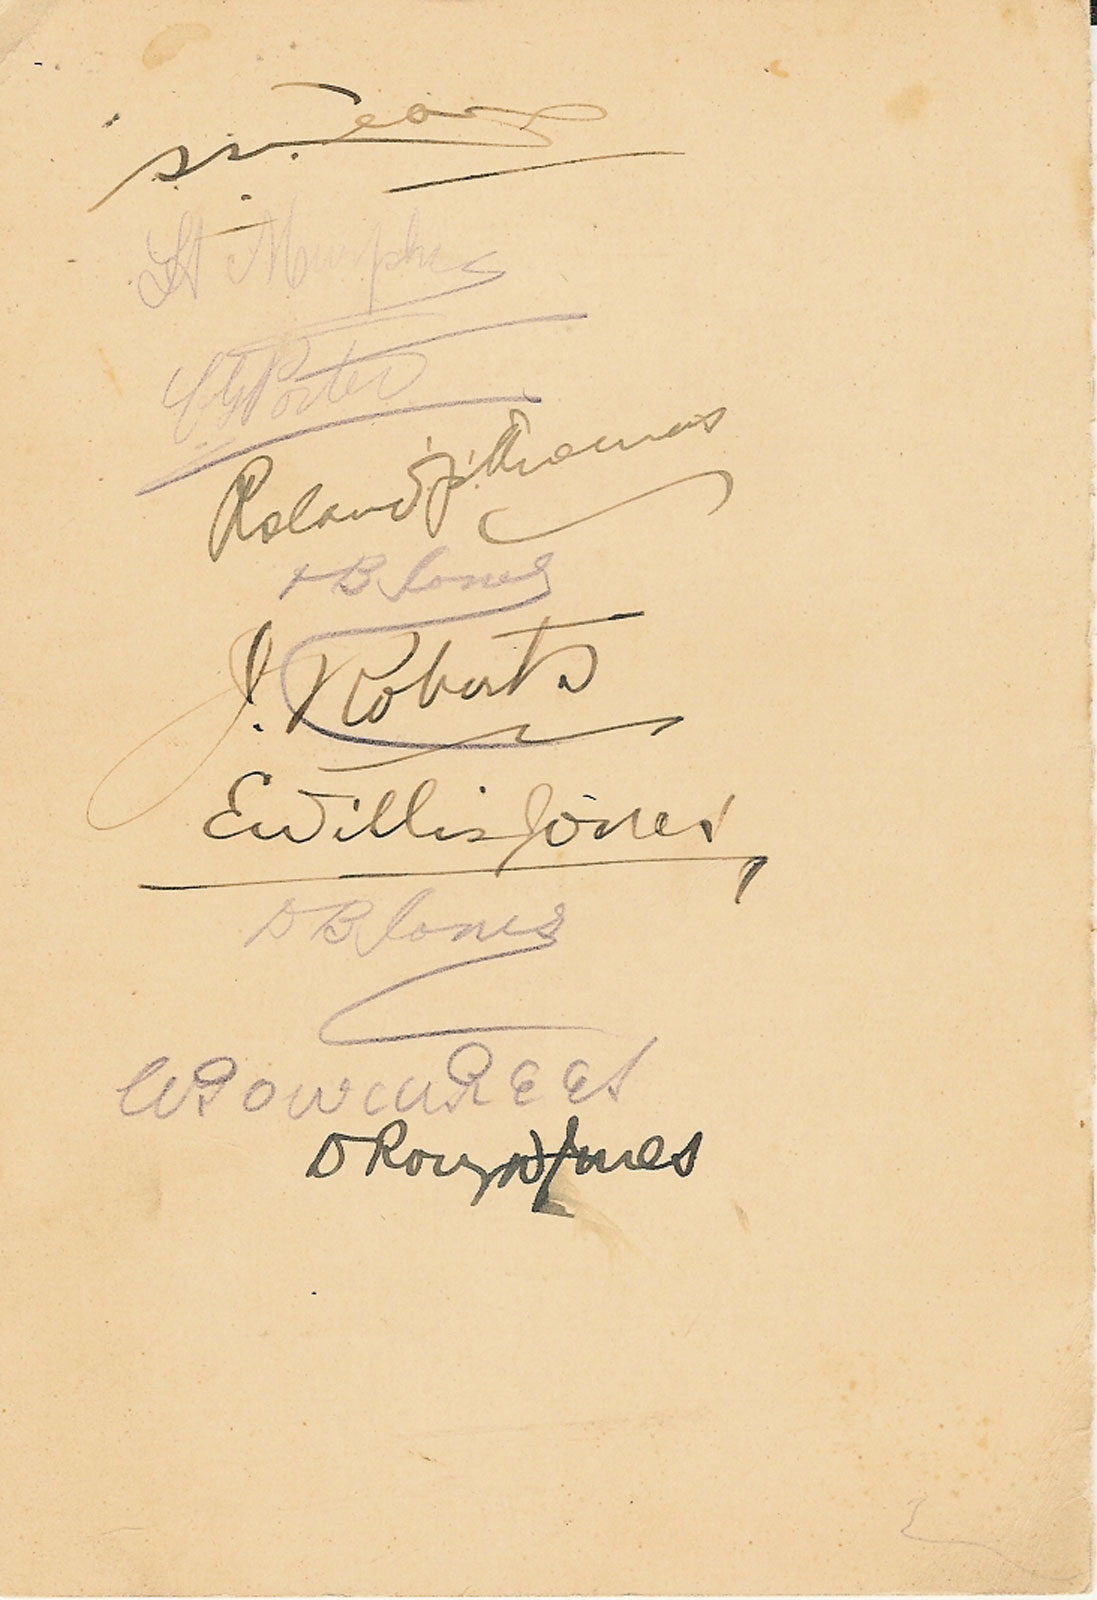 Lt Murphy
C G Porter
Roland J. Thomas
B Jones
J. Roberts
E Willis Jones
D B Jones
W P Owen REES
D Jones